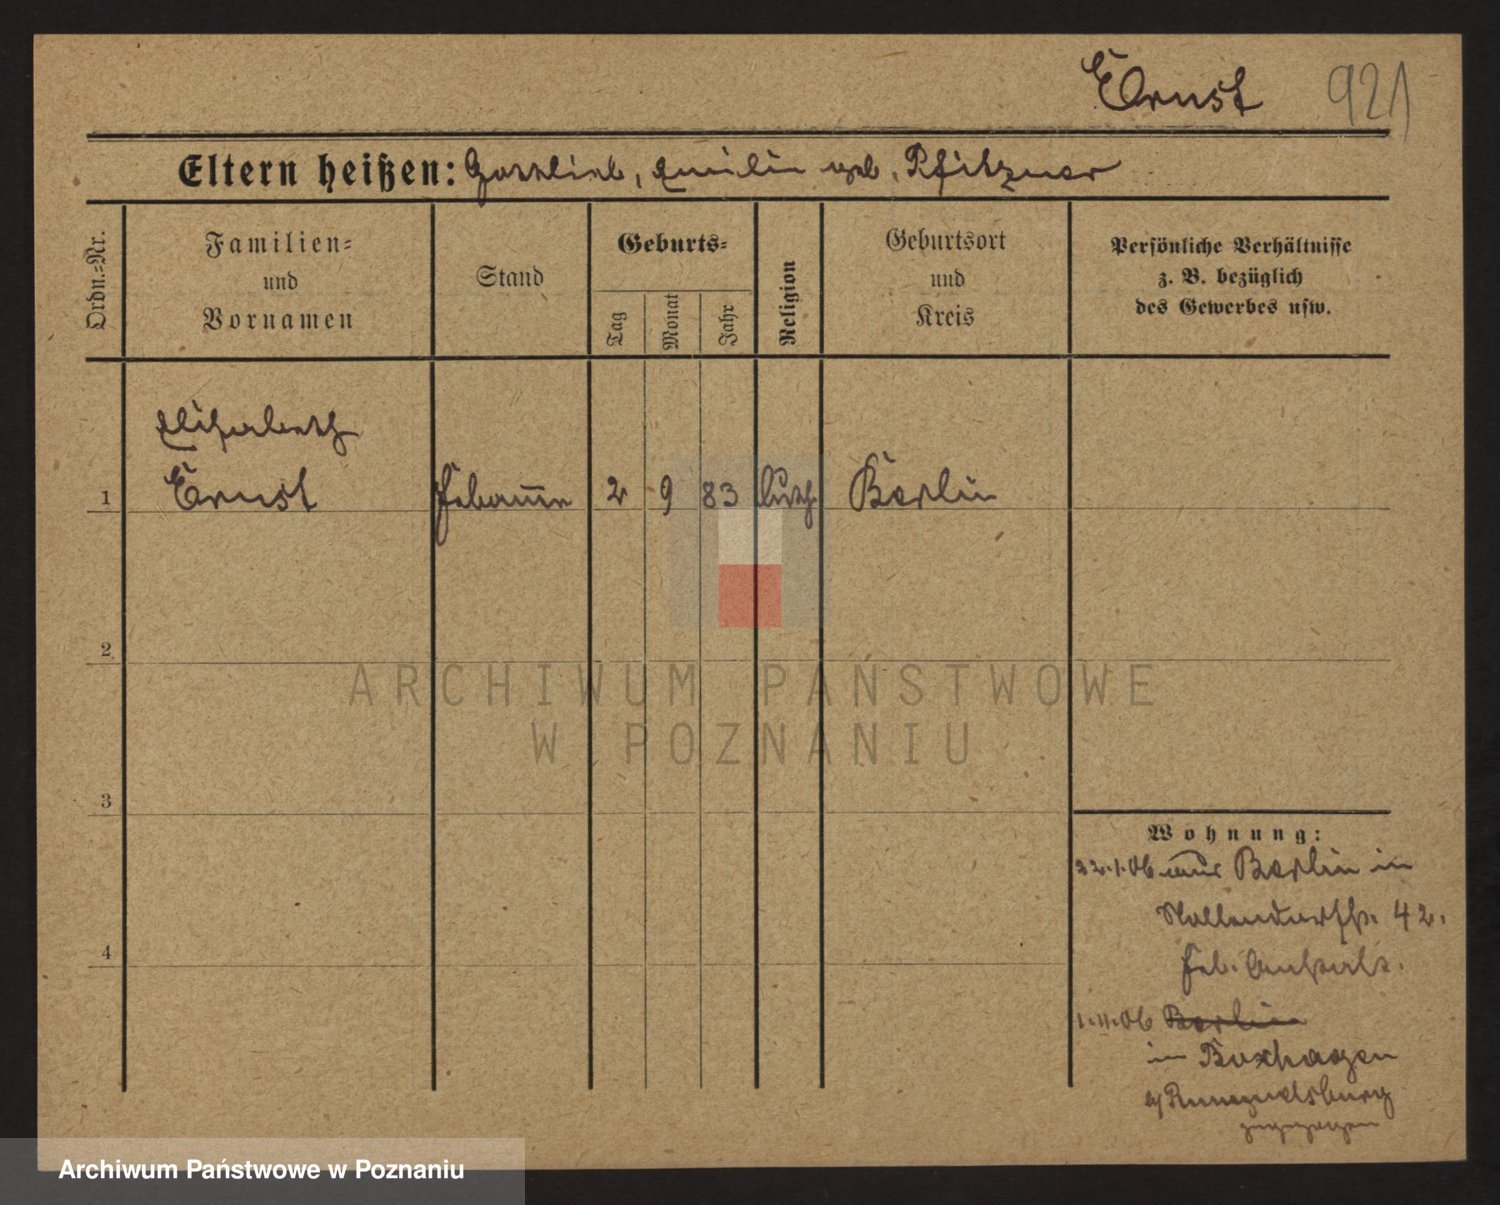 Ernst 921
Eltern heißen: Gottlieb, Emilie geb. Pfitzner
Ordn.=Nr.
Familien=
und
Vornamen
Stand
Geburts=
Tag
Monat
Jahr
Religion
Geburtsort
und
Kreis
Persönliche Verhältnisse
z. B. bezüglich
des Gewerbes usw.
Elisabeth
1 Ernst Hebamme 2 9 83 luth. Berlin
2
3
4
ARCHIWUM PAŃSTWOWE
W POZNANIU
Wohnung:
22.1.06 aus Berlin in
Nollendorfstr. 42.
Heb. Anstalt.
1.11.06 Berlin
in Boxhagen
b/ Rummelsburg
zugezogen
Archiwum Państwowe w Poznaniu